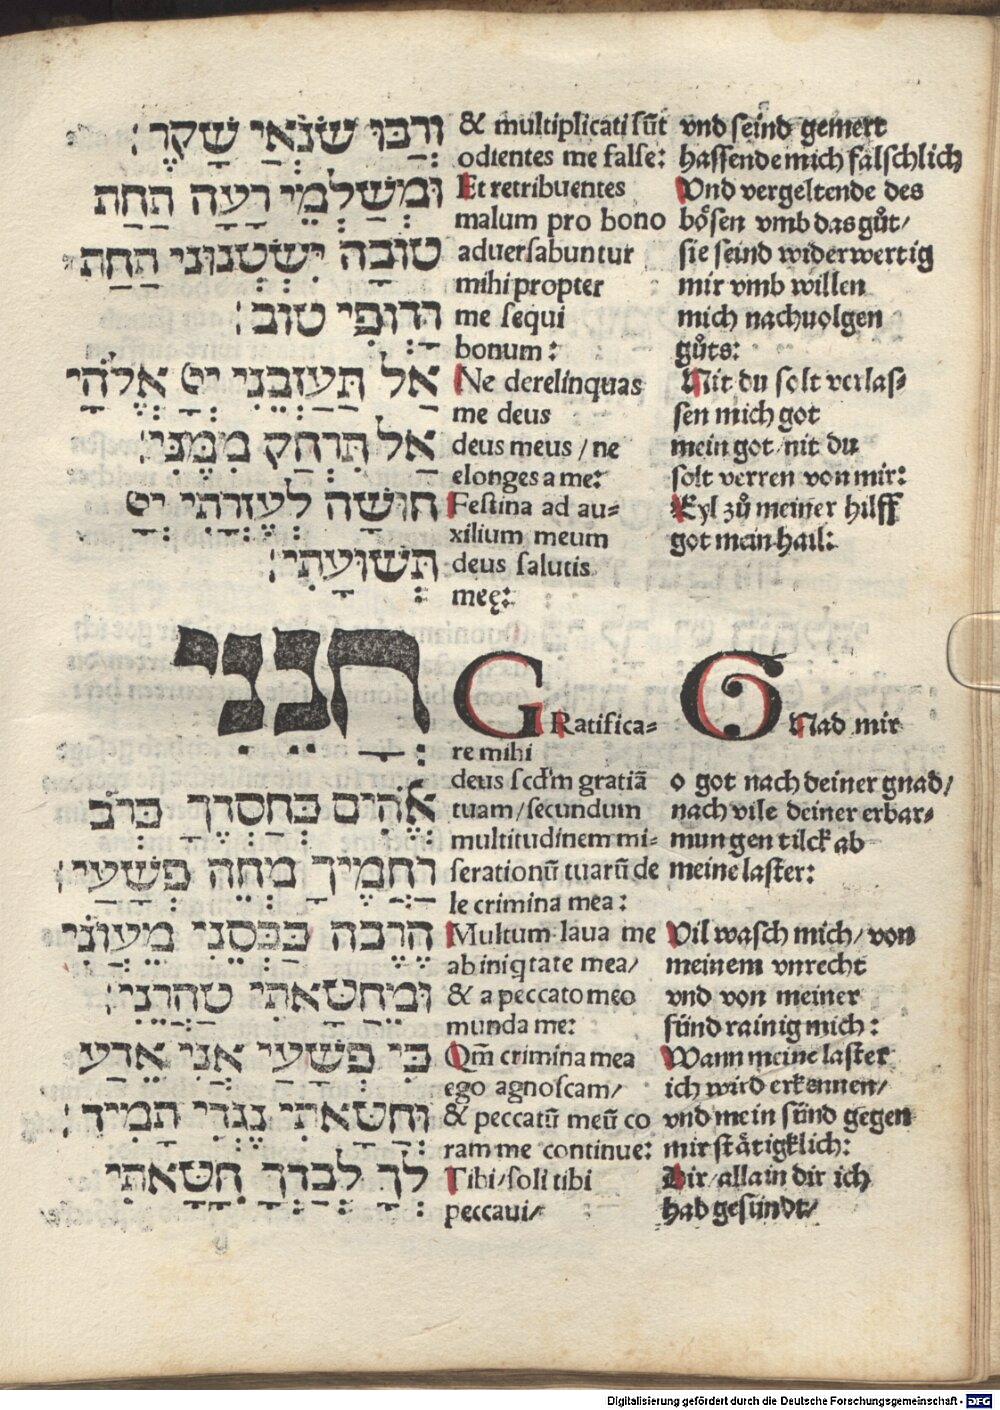 וְרַבּוּ שׂנְֹאַי שָׁקֶר׃
וּמְשַׁלְּמֵי רָעָה תַּחַת
טוֹבָה יִשְׂטְנוּנִי תַּחַת
רְדוֹפִי טוֹב׃
אַל תַּעַזְבֵנִי יְיָ אֱלֹהָי
אַל תִּרְחַק מִמֶּנִּי׃
חוּשָׁה לְעֶזְרָתִי יְיָ
תְּשׁוּעָתִי׃
חָנֵּנִי
אֱהִים כְּחַסְדֶּךָ כְּרֹב
רַחֲמֶיךָ מְחֵה פְשָׁעַי׃
הַרְבֵּה כַּבְּסֵנִי מֵעֲוֹנִי
וּמֵחַטָּאתִי טַהֲרֵנִי׃
כִּי פְשָׁעַי אֲנִי אֵדַע
וְחַטָּאתִי נֶגְדִּי תָמִיד׃
לְךָ לְבַדְּךָ חָטָאתִי
& multiplicati sūt
odientes me false:
Et retribuentes
malum pro bono
aduersabuntur
mihi propter
me sequi
bonum:
Ne derelinquas
me deus
deus meus / ne
elonges a me:
Festina ad au=
xilium meum
deus salutis
meę:
GRatifica=
re mihi
deus scd'm gratiā
tuam/secundum
multitudinem mi=
serationū tuarū de
le crimina mea:
Multum laua me
ab iniqtate mea/
& a peccato meo
munda me:
Qm̄ crimina mea
ego agnoscam/
& peccatū meū co
ram me continue:
Tibi/soli tibi
peccaui/
vnd seind gemert
hassende mich fälschlich
Vnd vergeltende des
bösen vmb das gůt/
sie seind widerwertig
mir vmb willen
mich nachuolgen
gůts:
Nit du solt verlas=
sen mich got
mein got/nit du
solt verren von mir:
Eyl zů meiner hilff
got mein hail:
GNad mir
o got nach deiner gnad/
nach vile deiner erbar=
mungen tilck ab
meine laster:
Vil wasch mich/von
meinem vnrecht
vnd von meiner
sünd rainig mich:
Wann meine laster
ich wird erkennen/
vnd mein sünd gegen
mir stätigklich:
Dir/allain dir ich
hab gesündt/
Digitalisierung gefördert durch die Deutsche Forschungsgemeinschaft - DFG